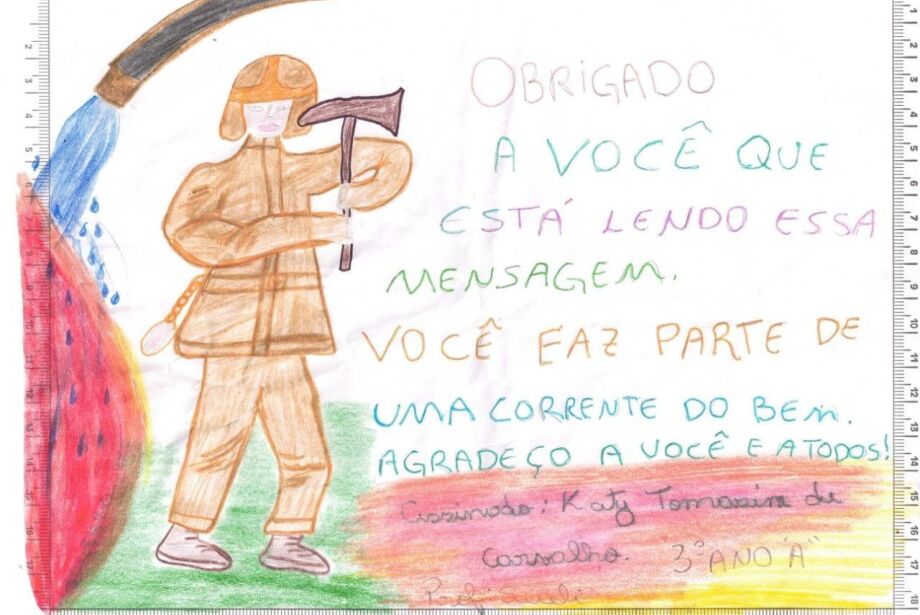 OBRIGADO
A VOCÊ QUE
ESTÁ LENDO ESSA
MENSAGEM.
VOCÊ FAZ PARTE DE
UMA CORRENTE DO BEM.
AGRADEÇO A VOCÊ E A TODOS!
Assinado: Katy Tomasini de
Carvalho. 3º ANO "A"
Prof. Sueli